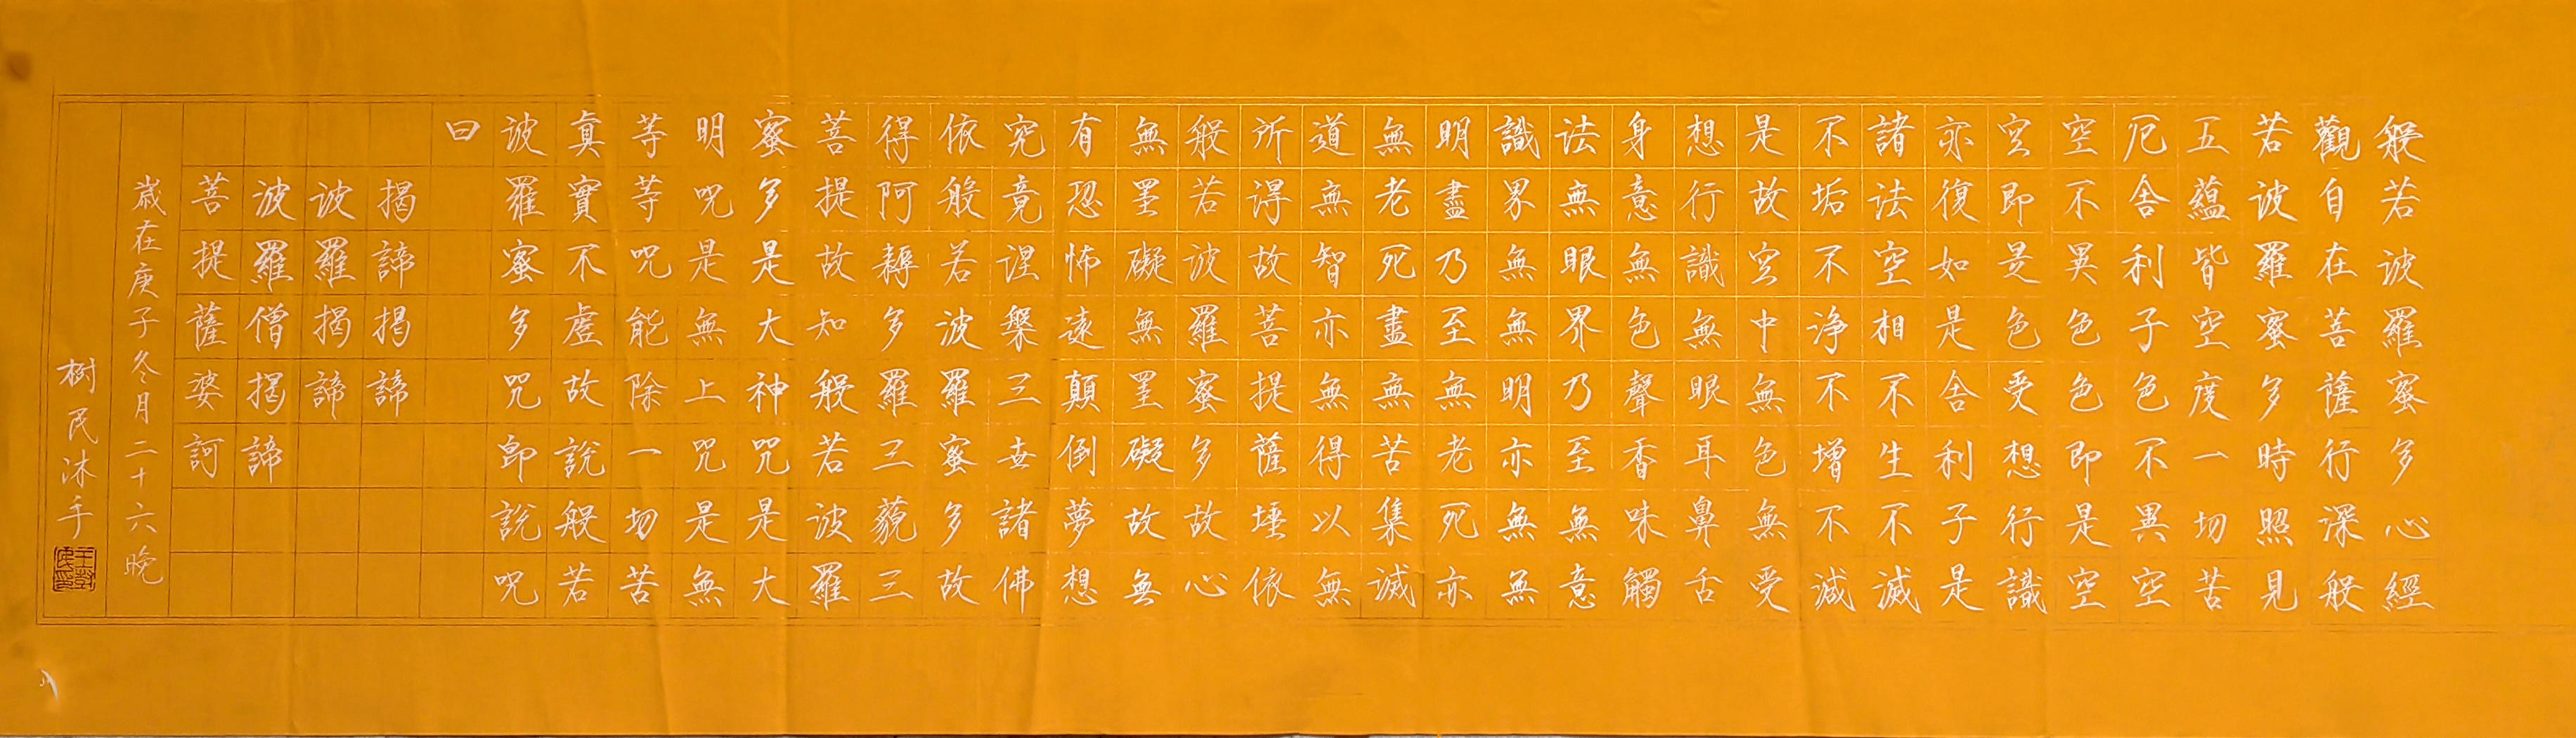 般若波羅蜜多心經
觀自在菩薩行深般
若波羅蜜多時照見
五蘊皆空度一切苦
厄舍利子色不異空
空不異色色即是空
空即是色受想行識
亦復如是舍利子是
諸法空相不生不滅
不垢不淨不增不減
是故空中無色無受
想行識無眼耳鼻舌
身意無色聲香味觸
法無眼界乃至無意
識界無無明亦無無
明盡乃至無老死亦
無老死盡無苦集滅
道無智亦無得以無
所得故菩提薩埵依
般若波羅蜜多故心
無罣礙無罣礙故無
有恐怖遠顛倒夢想
究竟涅槃三世諸佛
依般若波羅蜜多故
得阿耨多羅三藐三
菩提故知般若波羅
蜜多是大神咒是大
明咒是無上咒是無
等等咒能除一切苦
真實不虛故說般若
波羅蜜多咒即說咒
曰
揭諦揭諦
波羅揭諦
波羅僧揭諦
菩提薩婆訶
歲在庚子冬月二十六晚
樹民沐手